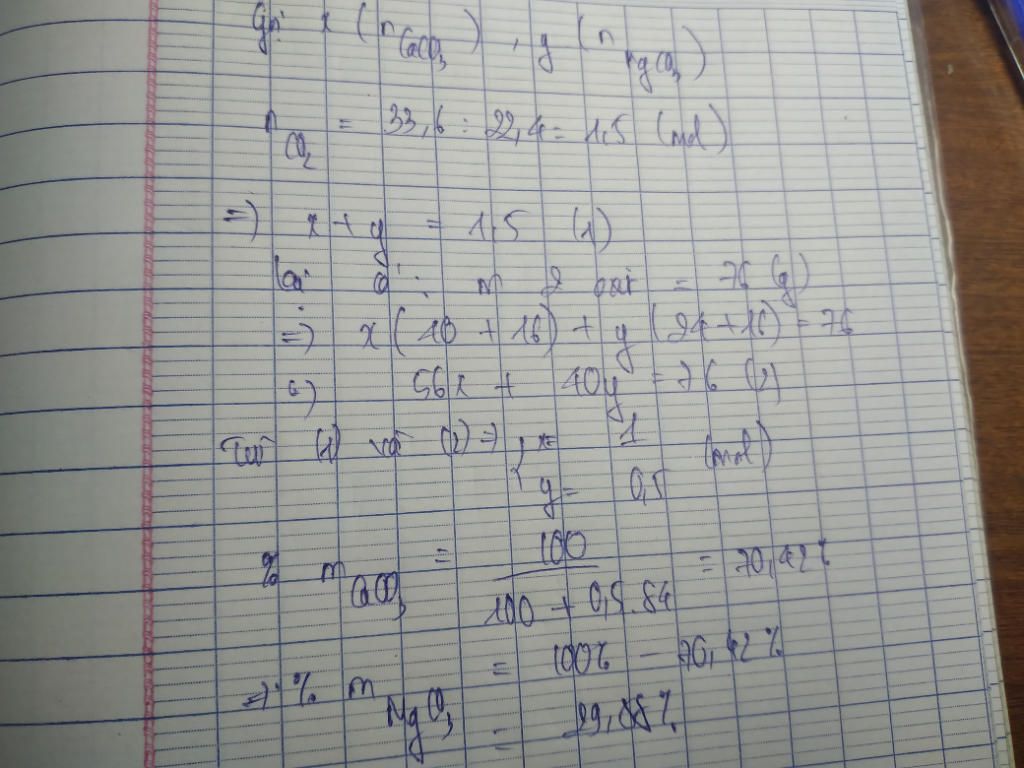 Gọi x (n CaCO3), y (n MgCO3)
n CO2 = 33,6 : 22,4 = 1,5 (mol)
=> x + y = 1,5 (1)
Lại có: m 2 oxit = 76 (g)
=> x(40 + 16) + y(24+16) = 76
56x + 40y = 76 (2)
Từ (1) và (2) => { x = 1 (mol)
y = 0,5
% m CaCO3 = 100 / 100 + 0,5.84 = 70,42%
=> % m MgCO3 = 100% - 70,42%
= 29,58%